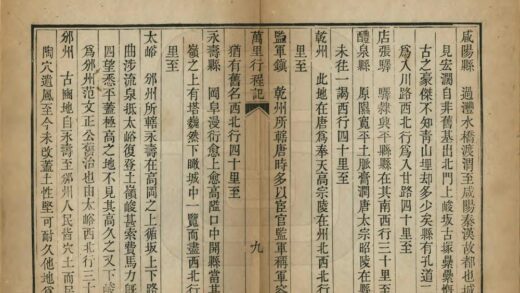 咸陽縣　過灃水橋渡渭至咸陽秦漢故都也城
見宏濶自非舊基出北門上峻坂古塚纍纍
古之豪傑不知青山埋却多少矣縣有孔道二
爲入川路西北行爲入甘路四十里至
店張驛　驛隸興平縣在其南西行三十里至
醴泉縣　原隰寬平土脈膏潤唐太宗昭陵在
未往一謁西行四十里至
乾州　此地在唐爲奉天高宗陵在州北西北行
監軍鎮　乾州所轄唐時多以宦官監軍稱軍容
萬里行程記
九
猶有舊名西北行四十里至
永壽縣　岡阜漫衍愈上愈高隘口中開縣當其
嶺之上有塔巍然下瞰城中一覽而盡西北行
里至
太峪　邠州所轄永壽在高岡之上循坂上下路
曲涉流泉抵太峪復登土嶺崎甚索費馬力
四望悉平蓋極高之地不見其高久之又下峻
爲邠州范文正公舊治也由太峪西北行三十
邠州　古豳地自永壽至邠州人民皆穴土而
陶穴遺風至今未改蓋土性堅可耐久他地爲